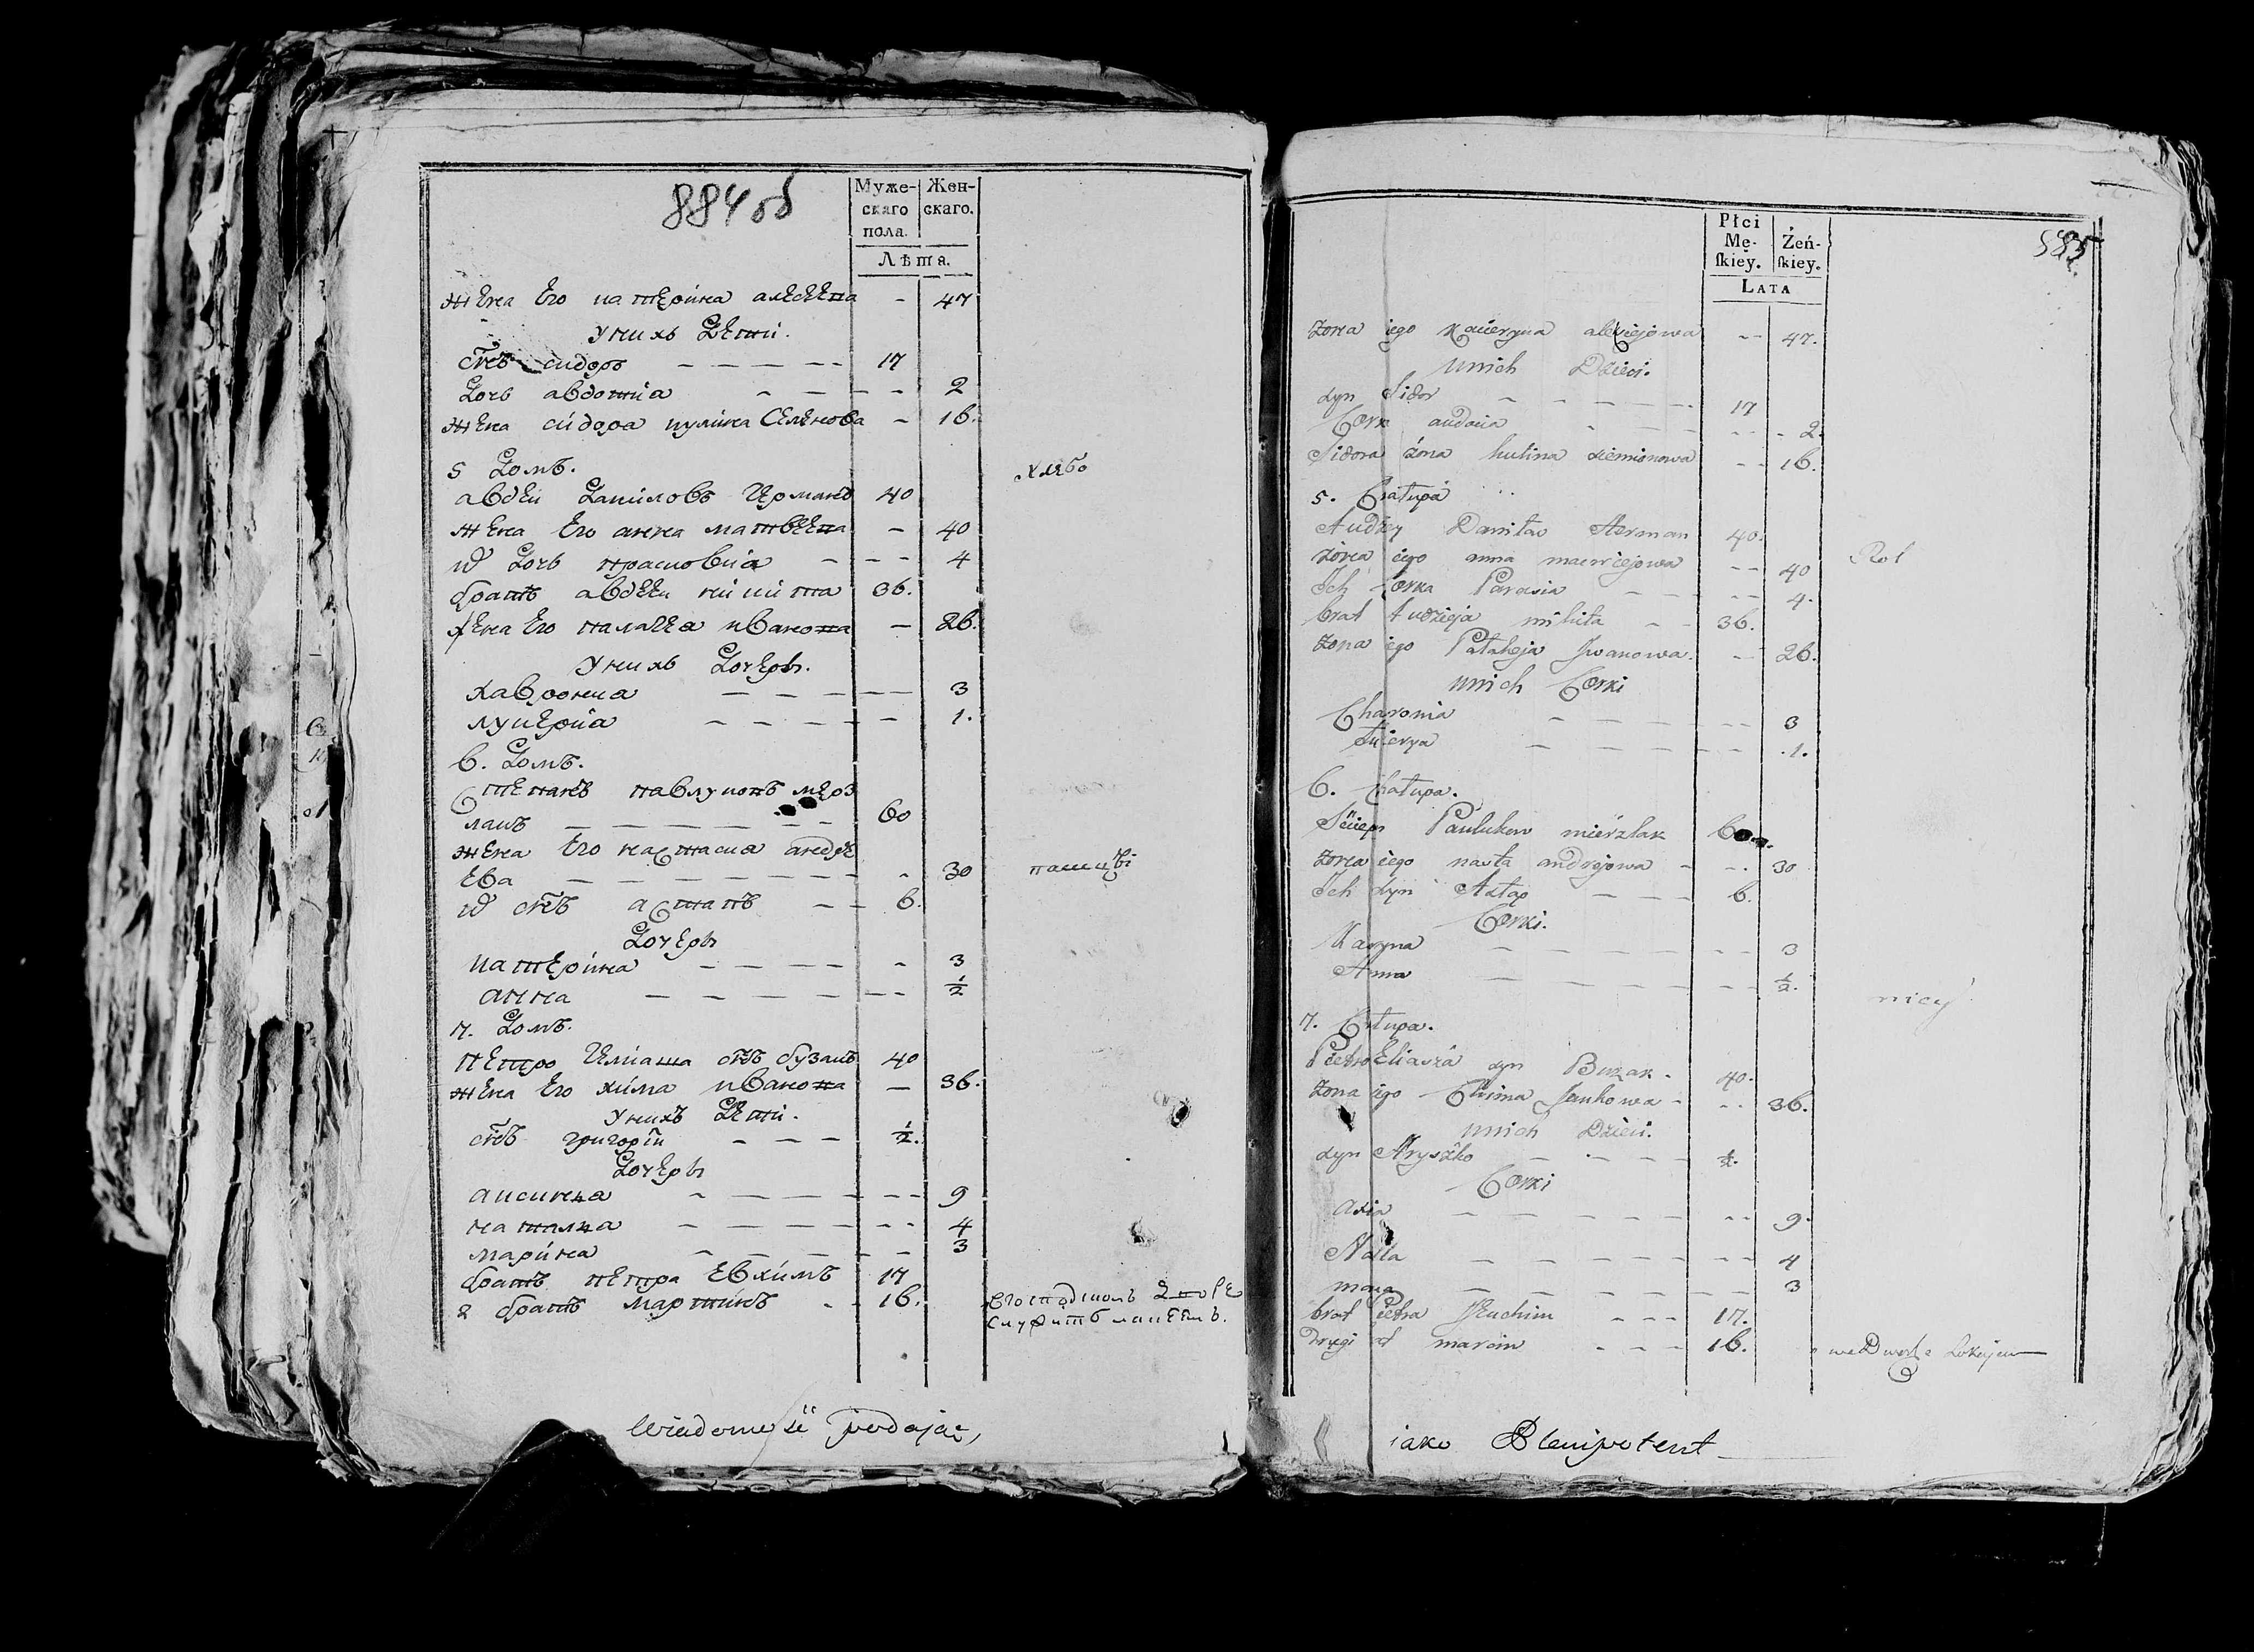 884 об
Муже-
скаго
пола.
Жен-
скаго.
Лѣта.
жена его катерина алеѯеева - 47
у нихъ дети.
снъ сидоръ 17
дочь авдотиа 2
жена сидора кулина Семенова - 16.
5 домъ.
хлебо
авдеи даниловъ Ярманъ 40
жена его анна матвеева - 40
их дочь прасковиа 4
братъ авдеи никита 36.
жена его палагея иванова - 26.
у нихъ дочеры.
хавронна 3
лукериа 1.
6. домъ.
степанъ павлуковъ мерз
лакъ 60
жена его настасиа андре
ева - 30
пашцы
их снъ астапъ 6.
дочеры
катерина 3
анна ½
7. домъ.
петро Илиаша снъ бузакъ 40
жена его хима иванова - 36.
у нихъ дети.
снъ григории ½.
дочеры
аксиниа 9
наталиа 4
марина 3
братъ петра Евхимъ 17
2 братъ мартинъ 16.
в господскомъ дворе
служитъ лакеемъ.
Wiadomość podając,
885
Płci
Mę-
ſkiey.
Żeń-
ſkiey.
LATA
żona iego Kacieryna alexiejowa -- 47.
unich Dzieci.
syn Sidor 17
Cork audocia 2.
Sidora żona kulina siemionowa -- 16.
5. Chałupa
Audziey Daniłow Herman 40.
żona iego anna maciejowa -- 40
Rol
Ich Corka Parasia 4.
brat Audzieja mikita 36.
żona iego Pałaheja Jwanowa. -- 26.
unich Corki
Charonia 3
Łucierya .1.
6. Chałupa.
Sciepan Paulukow mierzlak 60.
żona iego nasta andrejowa -- 30
Ich syn Astap 6.
Corki.
Karyna 3
Anna ½.
nicy
7. Chałupa.
Pietro Eliasza syn Buzak. 40.
żona iego Chima Jankowa -- 36.
unich Dzieci.
syn Hryszko ½.
Corki
axia 9.
Nasta 4
mara 3
brat Pietra Jeuchim 17.
drugi at marcin 16.
we Dworze Lokajem
iako Plenipotent